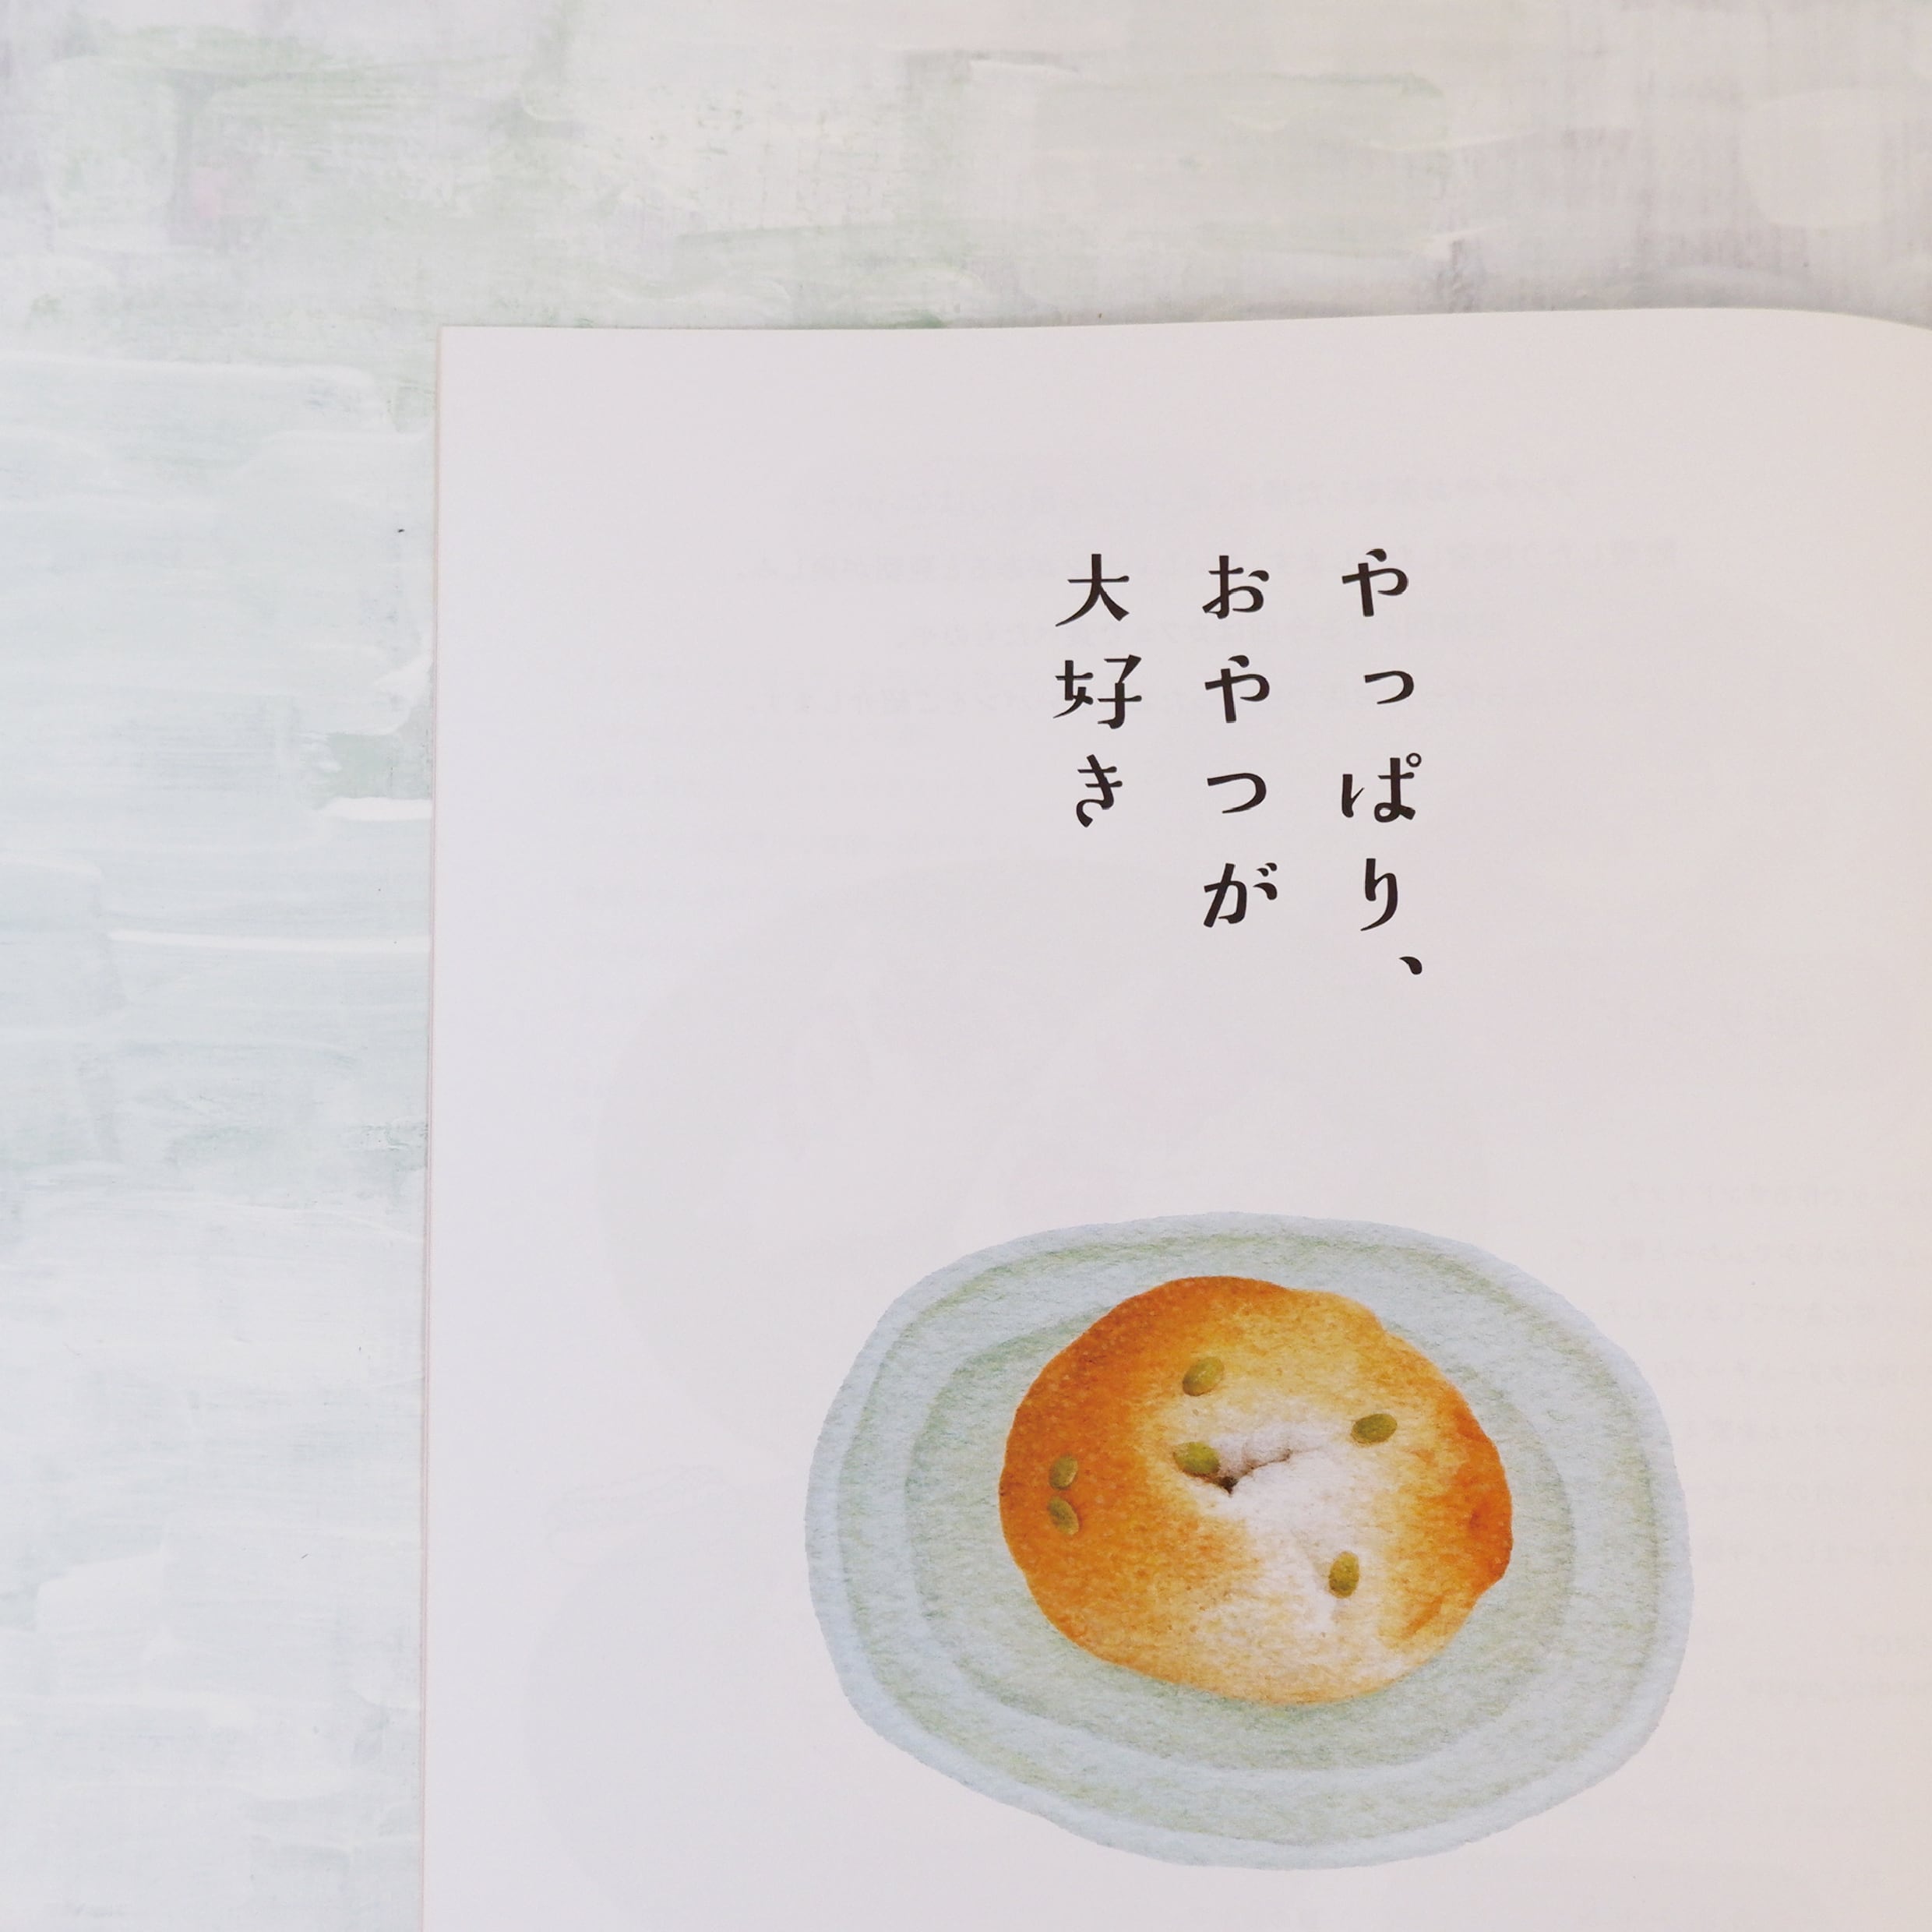 やっぱり、
おやつが
大好き